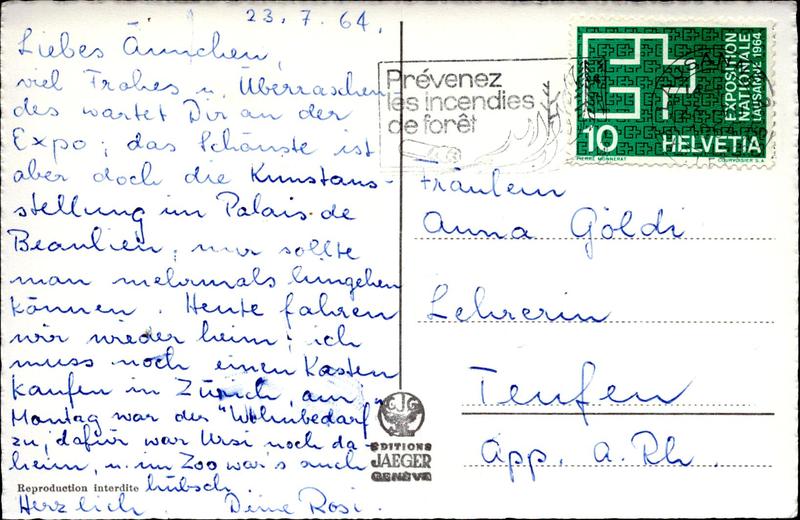 23. 7. 64.
Liebes Ännchen,
viel Frohes u. Überraschen
des wartet Dir an der
Expo; das Schönste ist
aber doch die Kunstaus-
stellung im Palais de
Beaulieu, nur sollte
man mehrmals hingehen
können. Heute fahren
wir wieder heim; ich
muss noch einen Kasten
kaufen in Zürich, am
Montag war der "Wohnbedarf"
zu, dafür war Ursi noch da-
heim, u. im Zoo war's auch
hübsch
Herzlich Deine Rosi.
Reproduction interdite
Prévenez
les incendies
de forêt
EXPOSITION
NATIONALE
LAUSANNE 1964
10 HELVETIA
PIERRE MONNERAT COURVOISIER S.A.
Fräulein
Anna Göldi
Lehrerin
Teufen
App. a. Rh.
EDITIONS
JAEGER
GENÈVE